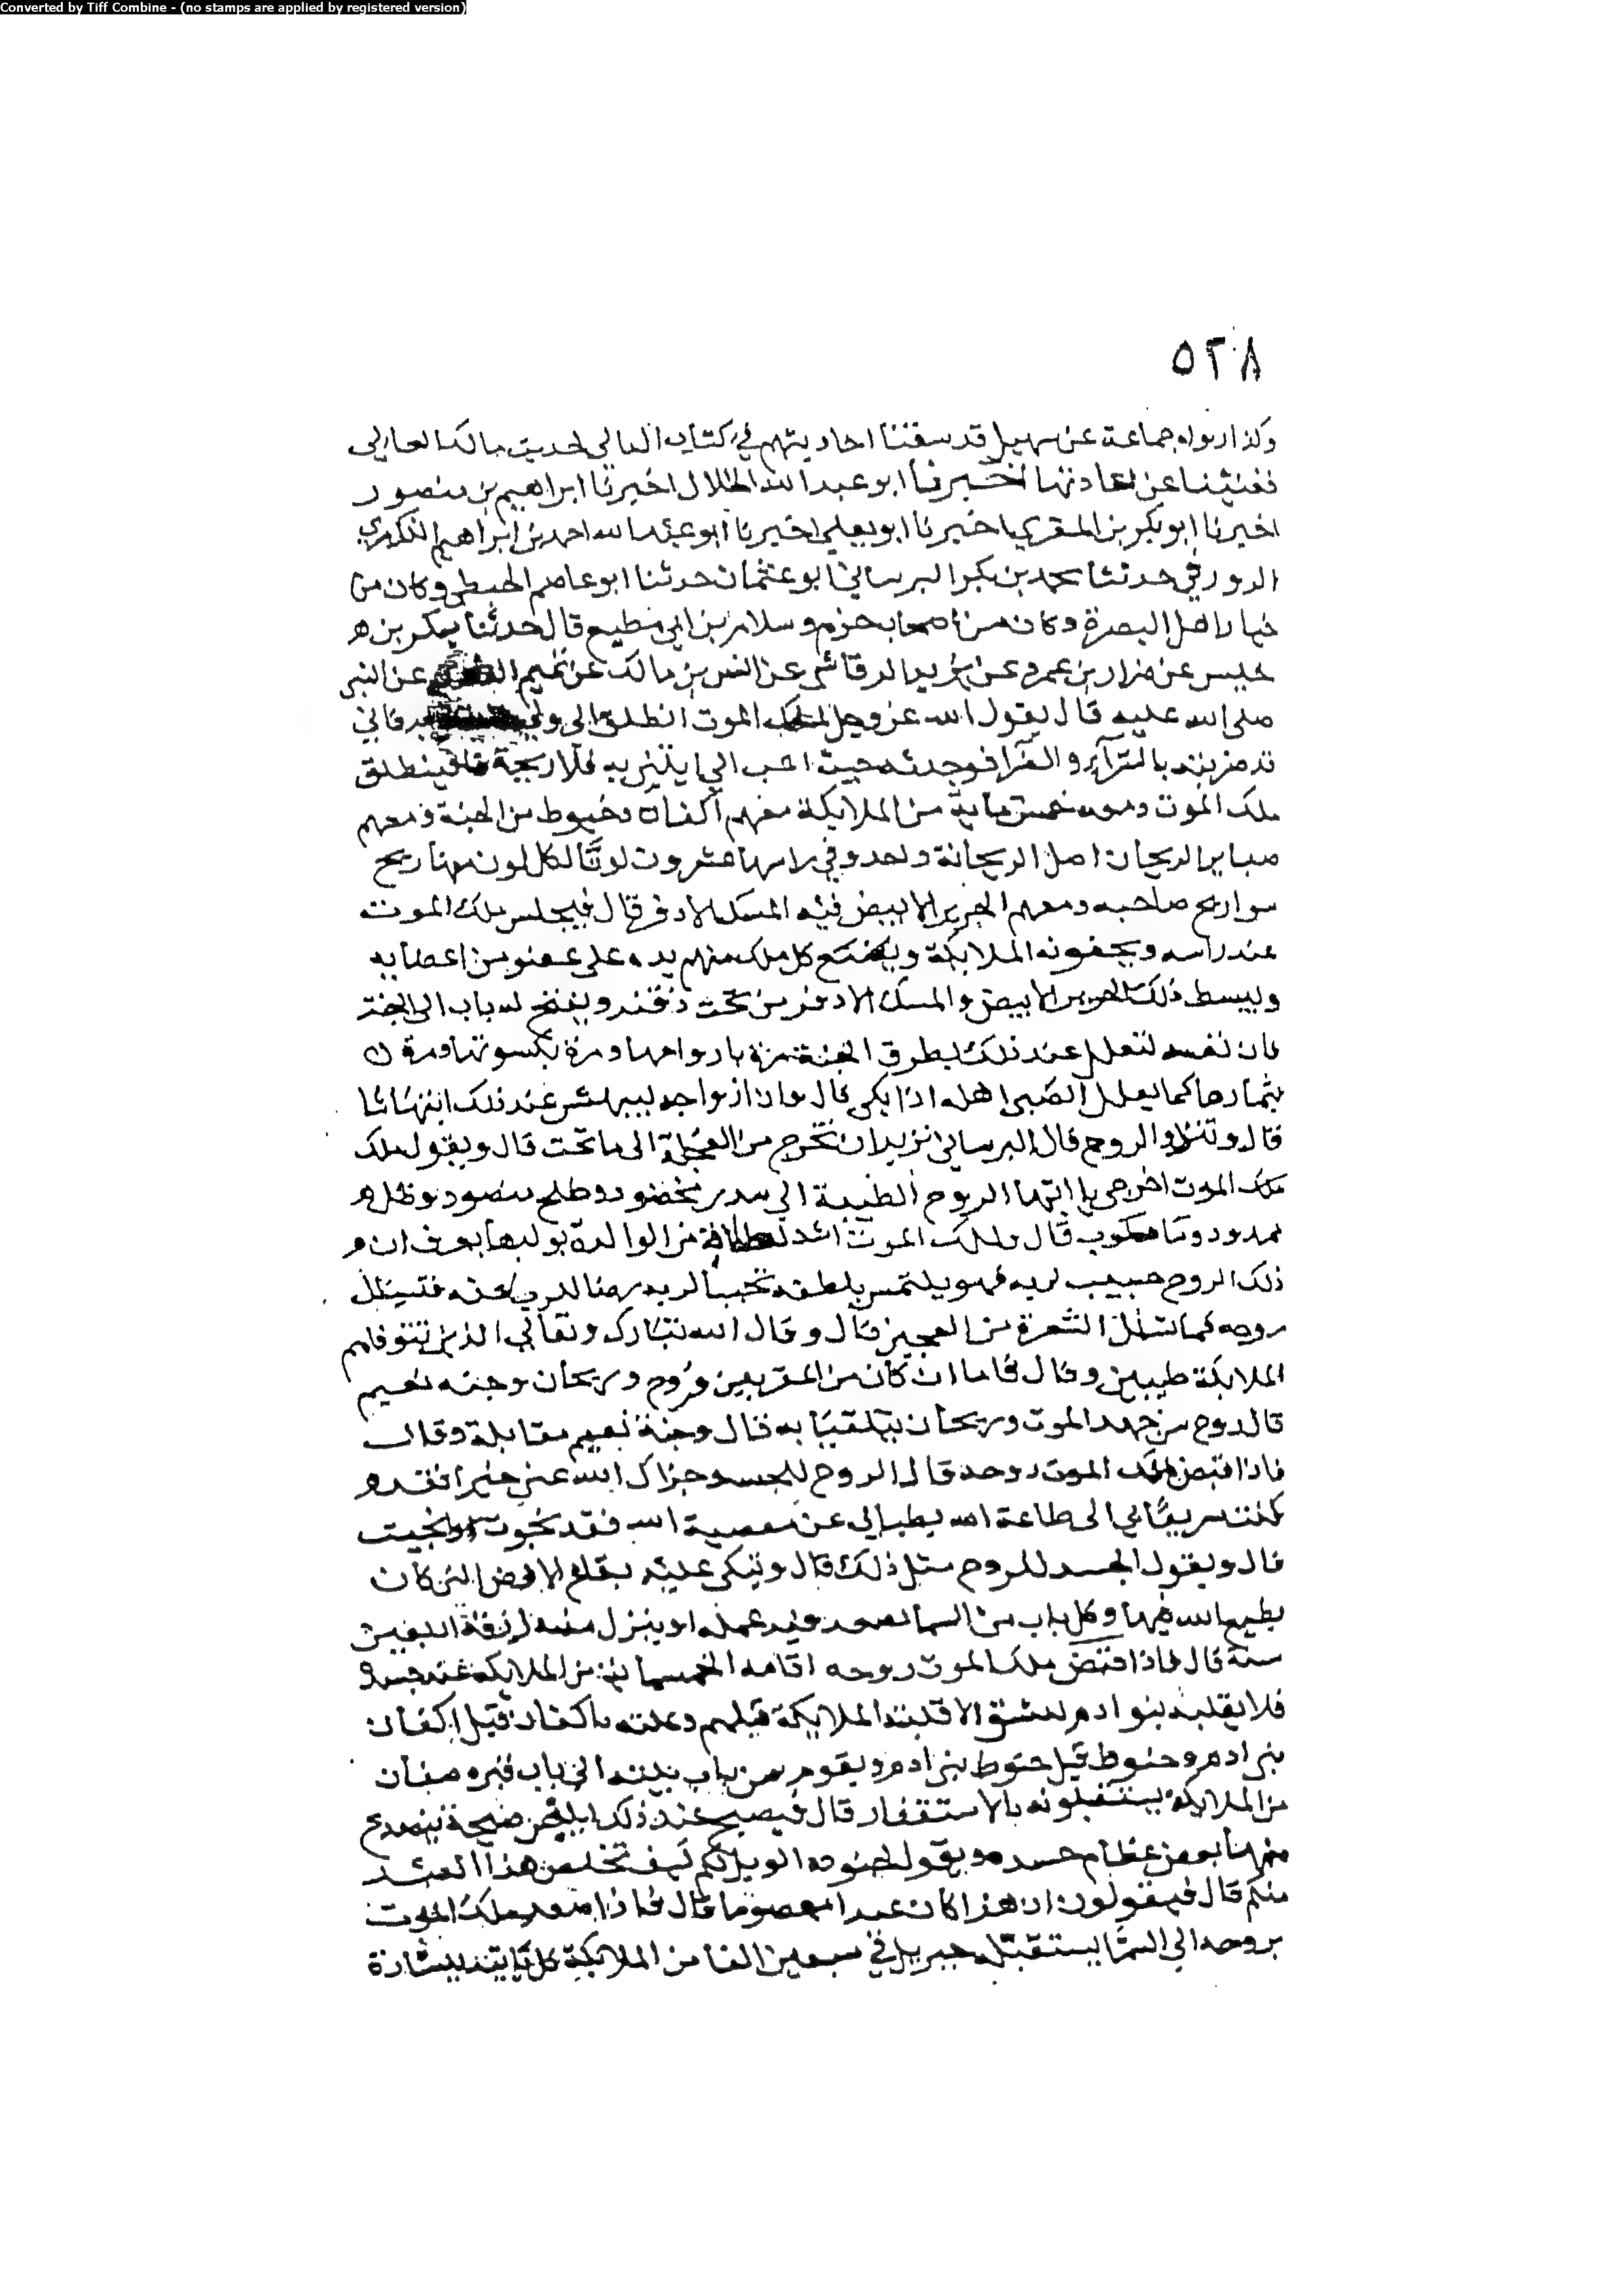 Converted by Tiff Combine - (no stamps are applied by registered version)
٥٢٨
وكذا رواه جماعة عن سهيل قد سقنا احاديثهم في كتاب التالي لحديث مالك العالي
فغنينا عن اعادتها اخبرنا ابو عبد الله الخلال اخبرنا ابراهيم بن منصور
اخبرنا ابو بكر بن المقري اخبرنا ابو يعلى اخبرنا ابو عبد الله احمد بن ابراهيم النكري
الدورقي حدثنا محمد بن بكر البرساني ابو عثمان حدثنا ابو عاصم الحبطي وكان من
خيار اهل البصرة وكان من اصحاب حزم وسلام بن ابي مطيع قال حدثنا بكر بن
خنيس عن ضرار بن عمرو عن يزيد الرقاشي عن انس بن مالك عن تميم عن النبي
صلى الله عليه قال يقول الله عز وجل لملك الموت انطلق الى ولي فاني
قد ضربته بالسراء والضراء فوجدته حيث احب ايتني به فلاريحة فينطلق
ملك الموت ومعه خمس ماية من الملايكة معهم اكفان وحنوط من الجنة ومعهم
ضباير الريحان اصل الريحانة واحد وفي راسها عشرون لونا لكل لون منها ريح
سوا ريح صاحبه ومعهم الحرير الابيض فيه المسك الاذفر قال فيجلس ملك الموت
عند راسه ويحفونه الملايكة ويضع كل ملك منهم يده على عضو من اعضايه
ويبسط ذلك الحرير الابيض والمسك الاذفر من تحت ذقنه ويفتح له باب الى الجنة
فان نفسه لتعلل عند ذلك بطرق الجنة مرة بازواجها ومرة بكسوتها ومرة
بثمارها كما يعلل الصبي اهله اذا بكى قال وان ازواجه ليبهشن عند ذلك ابتهاشا
قال وتنزو الروح قال البرساني تريد ان تخرج من العجلة الى ما تحب قال ويقول ملك
ملك الموت اخرجي يا ايتها الروح الطيبة الى سدر مخضود وطلح منضود وظل
ممدود وما مسكوب قال ولملك الموت اشد لطافة من الوالدة بولدها يعرف ان
ذلك الروح حبيب لربه فهو يلتمس بلطفه تحببا لربه رضا للرب عنه فتسل
روحه كما تسل الشعرة من العجين قال وقال الله تبارك وتعالى الذين تتوفاهم
الملايكة طيبين وقال فاما ان كان من المقربين فروح وريحان وجنه نعيم
قال روح من جهد الموت وريحان يتلقى به قال وجنة نعيم مقابلة وقال
فاذا قبض ملك الموت روحه قال الروح للجسد جزاك الله عني خيرا فقد
كنت سريعا بي الى طاعة الله بطيا بي عن معصية الله فقد نجوت وانجيت
قال ويقول الجسد للروح مثل ذلك قال وتبكي عليه بقاع الارض التي كان
يطيع الله فيها وكل باب من السما يصعد فيه عمله او ينزل منه رزقه اربعين
سنة قال فاذا قبض ملك الموت روحه اقامه الخمسماية من الملايكه عند جسده
فلا يقلبه بنو ادم لشق الا قلبته الملايكة قبلهم وعلته باكفان قبل اكفان
بني ادم وحنوط قبل حنوط بني ادم ويقوم من باب بيته الى باب قبره صفان
من الملايكة يستقبلونه بالاستغفار قال فيصيح عند ذلك ابليس صيحة يتصدع
منها بعض عظام جسده ويقول لجنوده الويل لكم كيف تخلص هذا العبد
منكم قال فيقولون ان هذا كان عبدا معصوما قال فاذا صعد ملك الموت
بروحه الى السما يستقبله جبريل في سبعين الفا من الملايكة كل ياتيه ببشارة